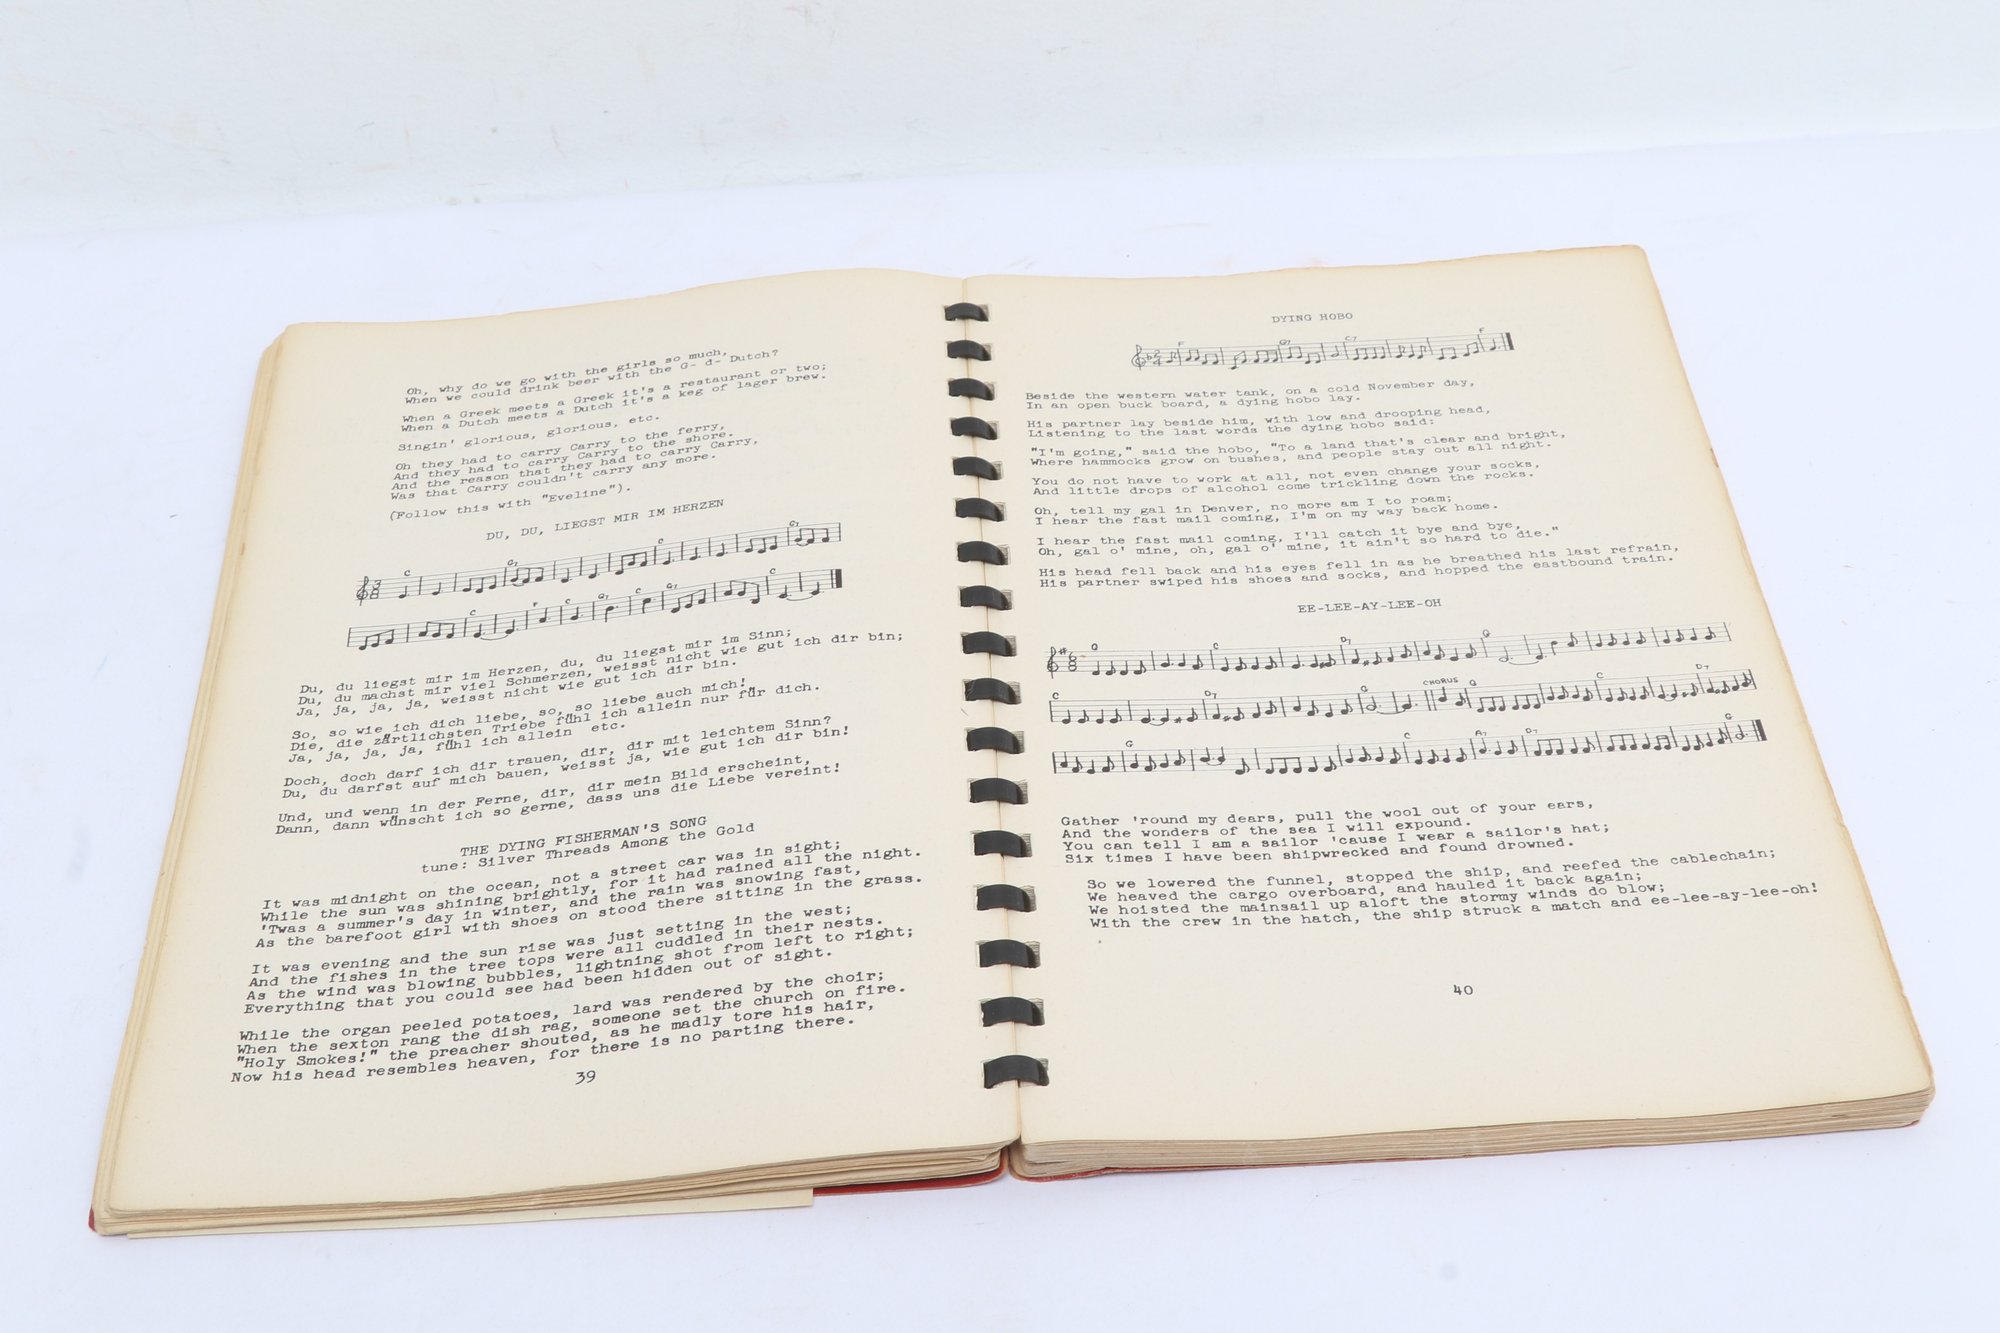 Oh, why do we go with the girls so much,
When we could drink beer with the G- d- Dutch?
When a Greek meets a Greek it's a restaurant or two;
When a Dutch meets a Dutch it's a keg of lager brew.
Singin' glorious, glorious, etc.
Oh they had to carry Carry to the ferry,
And they had to carry Carry to the shore.
And the reason that they had to carry Carry,
Was that Carry couldn't carry any more.
(Follow this with "Eveline").
DU, DU, LIEGST MIR IM HERZEN
C G7 C G7
C F C G7 C G7 C
Du, du liegst mir im Herzen, du, du liegst mir im Sinn;
Du, du machst mir viel Schmerzen, weisst nicht wie gut ich dir bin;
Ja, ja, ja, ja, weisst nicht wie gut ich dir bin.
So, so wie ich dich liebe, so, so liebe auch mich!
Die, die zärtlichsten Triebe fühl ich allein nur für dich.
Ja, ja, ja, ja, fühl ich allein etc.
Doch, doch darf ich dir trauen, dir, dir mit leichtem Sinn?
Du, du darfst auf mich bauen, weisst ja, wie gut ich dir bin!
Und, und wenn in der Ferne, dir, dir mein Bild erscheint,
Dann, dann wünscht ich so gerne, dass uns die Liebe vereint!
THE DYING FISHERMAN'S SONG
tune: Silver Threads Among the Gold
It was midnight on the ocean, not a street car was in sight;
While the sun was shining brightly, for it had rained all the night.
'Twas a summer's day in winter, and the rain was snowing fast,
As the barefoot girl with shoes on stood there sitting in the grass.
It was evening and the sun rise was just setting in the west;
And the fishes in the tree tops were all cuddled in their nests.
As the wind was blowing bubbles, lightning shot from left to right;
Everything that you could see had been hidden out of sight.
While the organ peeled potatoes, lard was rendered by the choir;
When the sexton rang the dish rag, someone set the church on fire.
"Holy Smokes!" the preacher shouted, as he madly tore his hair,
Now his head resembles heaven, for there is no parting there.
39
DYING HOBO
F G7 C7 F
Beside the western water tank, on a cold November day,
In an open buck board, a dying hobo lay.
His partner lay beside him, with low and drooping head,
Listening to the last words the dying hobo said:
"I'm going," said the hobo, "To a land that's clear and bright,
Where hammocks grow on bushes, and people stay out all night.
You do not have to work at all, not even change your socks,
And little drops of alcohol come trickling down the rocks.
Oh, tell my gal in Denver, no more am I to roam;
I hear the fast mail coming, I'm on my way back home.
I hear the fast mail coming, I'll catch it bye and bye,
Oh, gal o' mine, oh, gal o' mine, it ain't so hard to die."
His head fell back and his eyes fell in as he breathed his last refrain,
His partner swiped his shoes and socks, and hopped the eastbound train.
EE-LEE-AY-LEE-OH
G C D7 G
C D7 G CHORUS G C D7
G C A7 D7 G
Gather 'round my dears, pull the wool out of your ears,
And the wonders of the sea I will expound.
You can tell I am a sailor 'cause I wear a sailor's hat;
Six times I have been shipwrecked and found drowned.
So we lowered the funnel, stopped the ship, and reefed the cablechain;
We heaved the cargo overboard, and hauled it back again;
We hoisted the mainsail up aloft the stormy winds do blow;
With the crew in the hatch, the ship struck a match and ee-lee-ay-lee-oh!
40